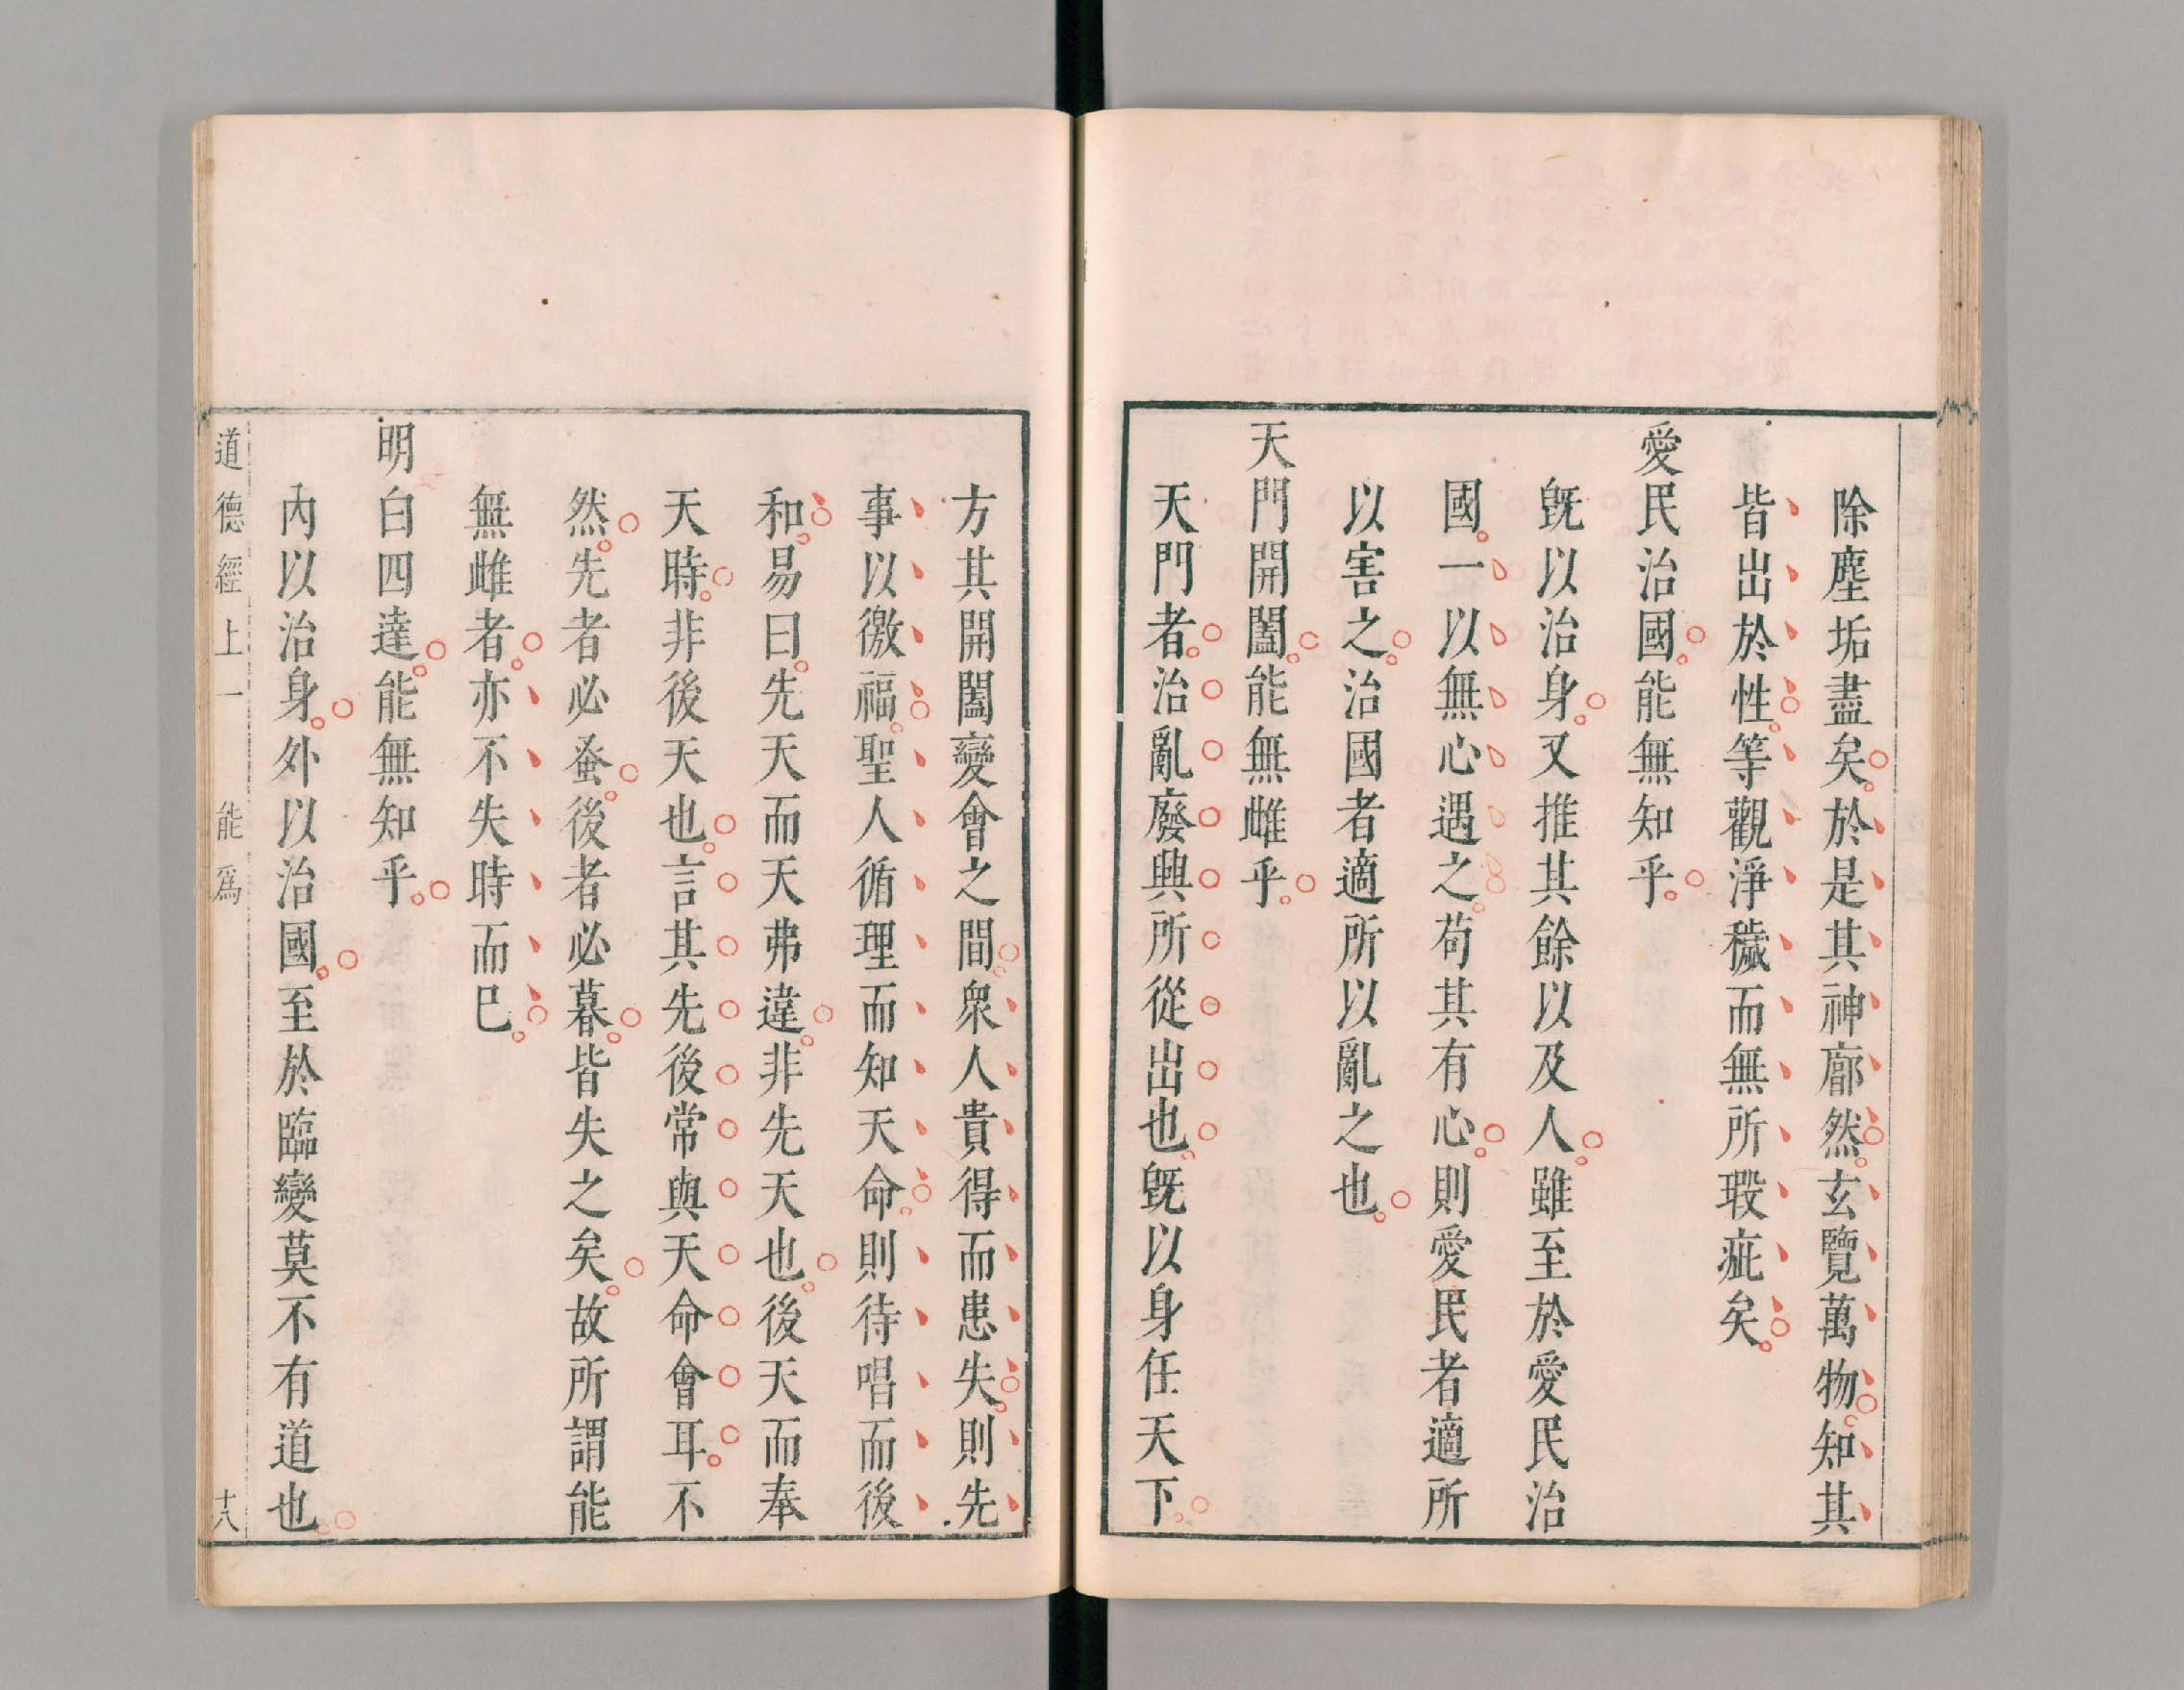 除塵垢盡矣於是其神廓然玄覽萬物知其
皆出於性等觀淨穢而無所瑕疵矣
愛民治國能無知乎
旣以治身又推其餘以及人雖至於愛民治
國一以無心遇之苟其有心則愛民者適所
以害之治國者適所以亂之也
天門開闔能無雌乎
天門者治亂廢興所從出也旣以身任天下
方其開闔變會之間衆人貴得而患失則先
事以徼福聖人循理而知天命則待唱而後
和易曰先天而天弗違非先天也後天而奉
天時非後天也言其先後常與天命會耳不
然先者必蚤後者必暮皆失之矣故所謂能
無雌者亦不失時而巳
明白四達能無知乎
內以治身外以治國至於臨變莫不有道也
道德經上一 能爲 十八